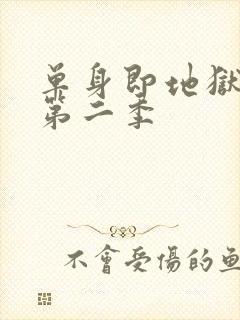 單身即地獄
第二季
不會受傷的魚